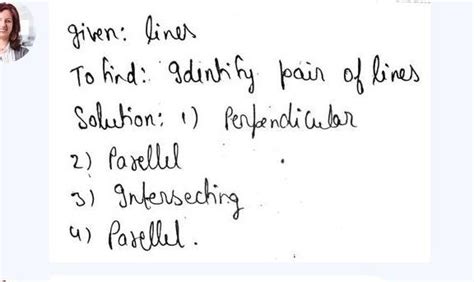 given: lines
To find: Identify pair of lines
Solution: 1) Perpendicular
2) Parellel
3) Intersecting
4) Parellel.